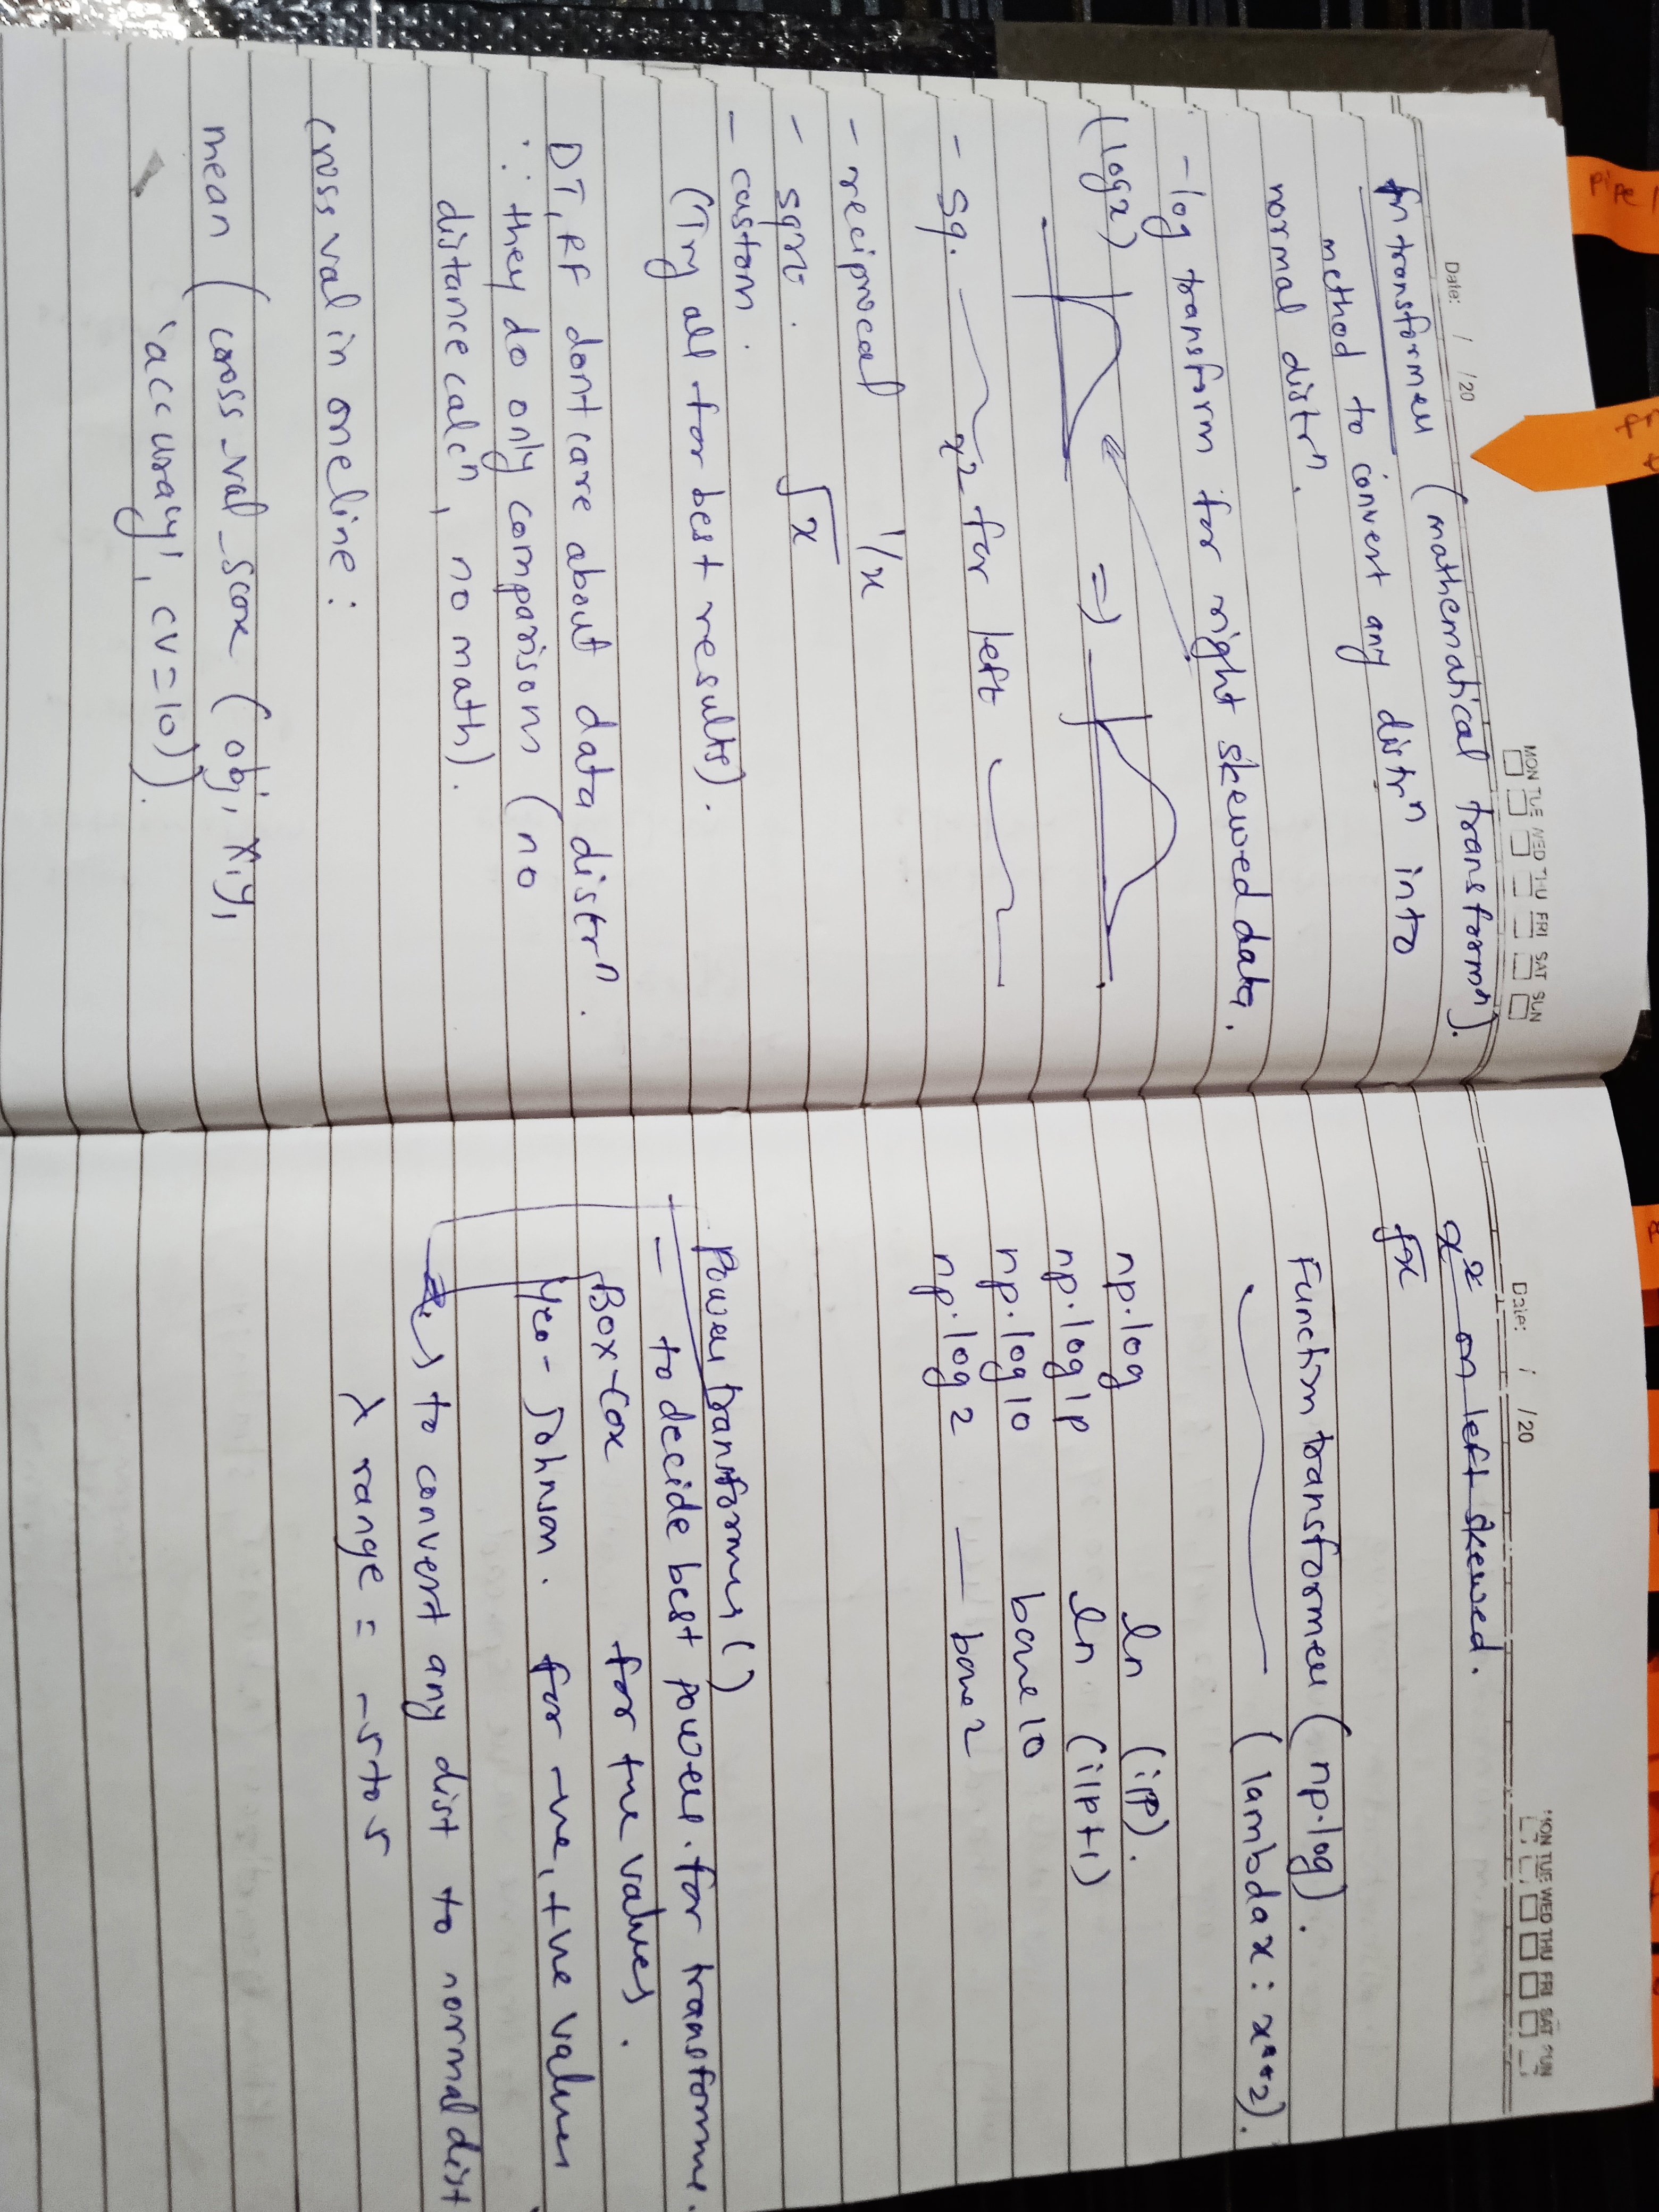 Date: / /20
MON TUE WED THU FRI SAT SUN
fn transformer (mathematical transformⁿ).
method to convert any distrⁿ into
normal distrⁿ.
- log transform for right skewed data.
(log x) =>
- sq. x² for left
- reciprocal 1/x
- sqrt. √x
- custom.
(Try all for best results).
DT, RF dont care about data distrⁿ.
∵ they do only comparisons (no
distance calcⁿ, no math).
cross val in one line:
mean (cross_val_score (obj, x, y,
'accuracy', cv=10)).
Date: / /20
MON TUE WED THU FRI SAT SUN
x² on left skewed.
√x
Function transformer (np.log).
(lambda x: x**2).
np.log ln (i/p).
np.log1p ln (i/p+1)
np.log10 base 10
np.log2 — base 2
Power transformer ()
- to decide best power for transforme.
Box-Cox for +ve values.
Yeo-Johnson. for -ve, +ve values
to convert any dist to normal dist
λ range = -5 to 5
pipe